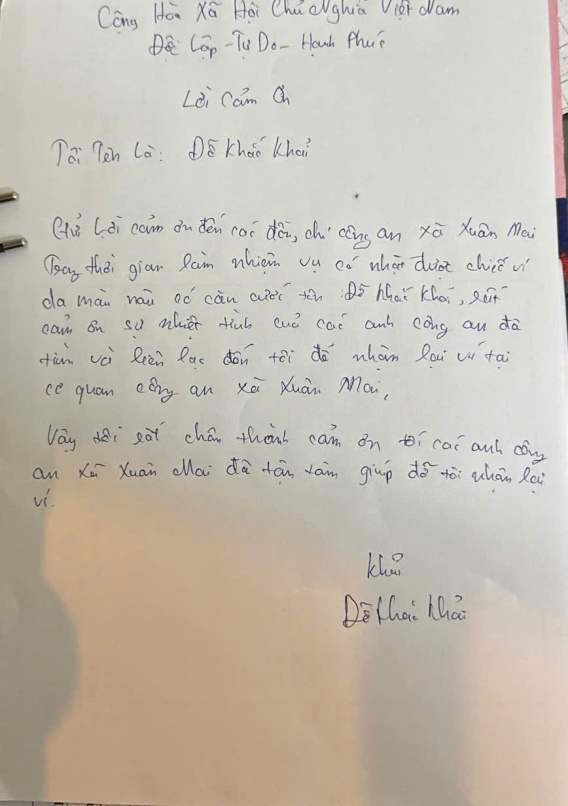 Cộng Hòa Xã Hội Chủ Nghĩa Việt Nam
Độc Lập - Tự Do - Hạnh Phúc
Lời Cảm Ơn
Tôi Tên Là: Đỗ Khắc Khải
Gửi Lời cảm ơn đến các đồng chí công an xã Xuân Mai
Trong thời gian làm nhiệm vụ có nhặt được chiếc ví
da màu nâu có căn cước tên Đỗ Khắc Khải, rất
cảm ơn sự nhiệt tình của các anh công an đã
tìm và liên lạc đến tôi để nhận lại ví tại
cơ quan công an xã Xuân Mai,
Vậy tôi rất chân thành cảm ơn tới các anh công
an xã Xuân Mai đã tận tâm giúp đỡ tôi nhận lại
ví.
Khải
Đỗ Khắc Khải